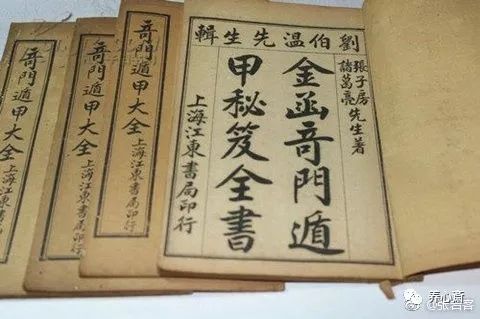 劉伯温先生輯
張子房
諸葛亮
先生著
金函奇門遁
甲秘笈全書
上海江東書局印行
奇門遁甲大全
上海江東書局印行
奇門遁甲大全
上海江東書局印行
奇門遁甲大全
养心斋